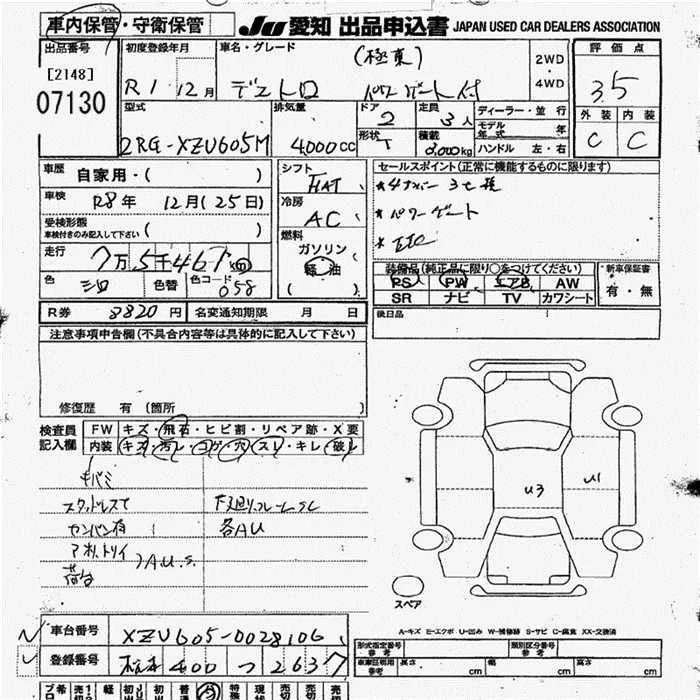 車内保管・守衛保管
JU 愛知 出品申込書 JAPAN USED CAR DEALERS ASSOCIATION
出品番号
[2148]
07130
初度登録年月
R1 12月
車名・グレード
(極東)
デュトロ パワーゲート付
2WD
・
4WD
評価点
3.5
外装 内装
C C
型式
2RG-XZU605M
排気量
4000cc
ドア
2
形状
定員
3人
積載
kg
ディーラー・並行
モデル年式 年
ハンドル 左・右
車歴
自家用・( )
車検
R8年 12月(25日)
受検形態
車検付きのみ記入して下さい ( )
走行
7万5千461km
色
シロ
色替
色コード
058
シフト
冷房
AC
燃料
ガソリン
軽油
( )
セールスポイント(正常に機能するものに限ります)
★4ナンバー 3七種
★パワーゲート
★ETC
装備品(純正品に限り○をつけてください)
PS PW エアB AW
SR ナビ TV カワシート
新車保証書
有・無
後日品
R券 8820円 名変通知期限 月 日
注意事項申告欄(不具合内容等は具体的に記入して下さい)
修復歴 有 〔箇所 〕
検査員
記入欄
FW キズ・飛石・ヒビ割・リペア跡・X要
内装 キズ・汚レ・コゲ・穴・スレ・キレ・破レ
キバミ
スタッドレスて
センバン有
アオリ、トリイ
荷台
AU.S.
下廻リフレームSC
各AU
U3
U1
スペア
A-キズ E-エクボ U-凹み W-補修跡 S-サビ C-腐食 XX-交換済
車台番号 XZU605-0028106
登録番号 400 つ 2637
形式指定番号
参考
類別区分番号
参考
車庫証明用
参考
長さ cm 幅 cm 高さ cm